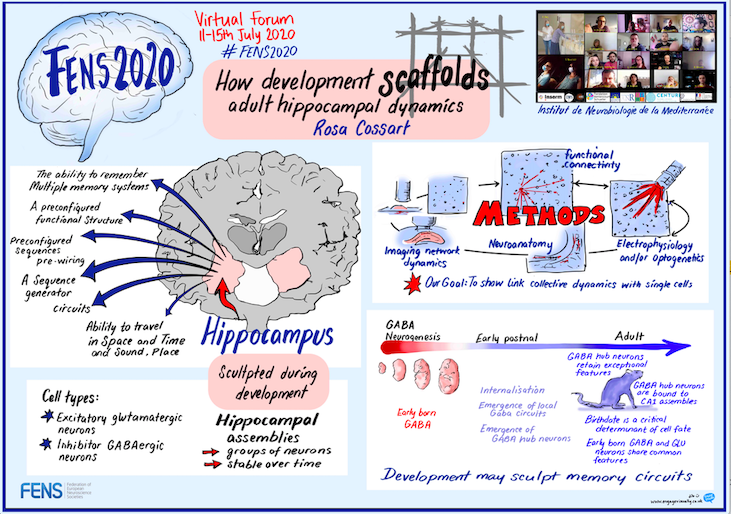 FENS2020
Virtual Forum
11-15th July 2020
# FENS2020
How development scaffolds
adult hippocampal dynamics
Rosa Cossart
Inserm
Institut de Neurobiologie de la Mediterranée
The ability to remember
Multiple memory systems
A preconfigured
functional structure
Preconfigured
sequences
pre-wiring
A Sequence
generator
circuits
Ability to travel
in Space and Time
and Sound, Place
Hippocampus
Sculpted during
development
Cell types:
Excitatory glutamatergic
neurons
Inhibitor GABAergic
neurons
Hippocampal
assemblies
groups of neurons
stable over time
functional
connectivity
METHODS
Imaging network
dynamics
Neuroanatomy
Electrophysiology
and/or optogenetics
Our Goal: To show Link collective dynamics with single cells
GABA
Neurogenesis
Early postnal
Adult
Early born
GABA
Internalisation
Emergence of local
Gaba circuits
Emergence of
GABA hub neurons
GABA hub neurons
retain exceptional
features
GABA hub neurons
are bound to
CA1 assemblies
Birthdate is a critical
determinant of cell fate
Early born GABA and GLU
neurons share common
features
Development may sculpt memory circuits
FENS
Federation of
European
Neuroscience
Societies
www.engagevisually.co.uk